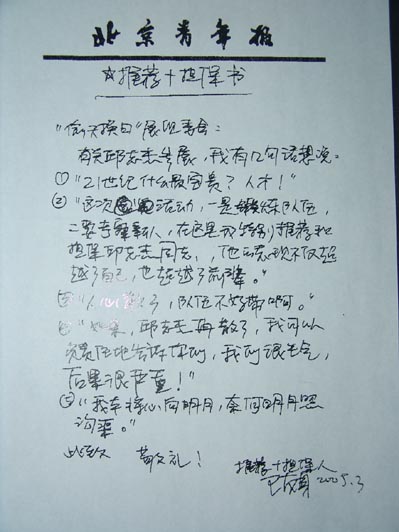 北京青年报
☆推荐+担保书
"偷天换日"展组委会:
有关邱志杰参展,我有几句话想说:
① "21世纪什么最宝贵?人才!"
② "这次活动,一是锻炼队伍,
二要考察新人,在这里我特别推荐和
担保邱志杰同志,他的表现不仅超
越了自己,也超越了前辈。"
③ "人心散了,队伍不好带啊。"
④ "如果,邱志杰再散了,我可以
负责任地告诉你们,我们很生气,
后果很严重!"
⑤ "我本将心向明月,奈何明月照
沟渠。"
此致 敬礼!
推荐+担保人
2005.3